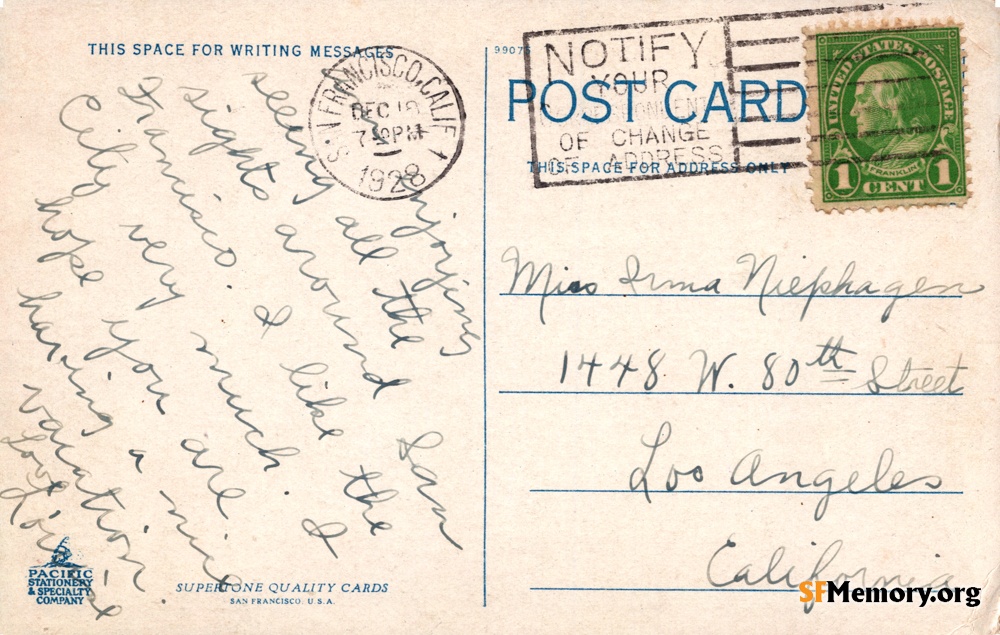 THIS SPACE FOR WRITING MESSAGES
SAN FRANCISCO, CALIF. 1
DEC 18
7 PM
1928
enjoying
seeing all the
sights around San
Francisco. I like the
City very much. I
hope you are
having a nice
vacation.
Love
Louise
PACIFIC
STATIONERY
& SPECIALTY
COMPANY
SUPERTONE QUALITY CARDS
SAN FRANCISCO. U.S.A.
9907
NOTIFY
YOUR
OF CHANGE
OF ADDRESS
POST CARD
THIS SPACE FOR ADDRESS ONLY
UNITED STATES POSTAGE
FRANKLIN
1 CENT 1
Miss Irma Niephagen
1448 W. 80th Street
Los Angeles
California
SFMemory.org